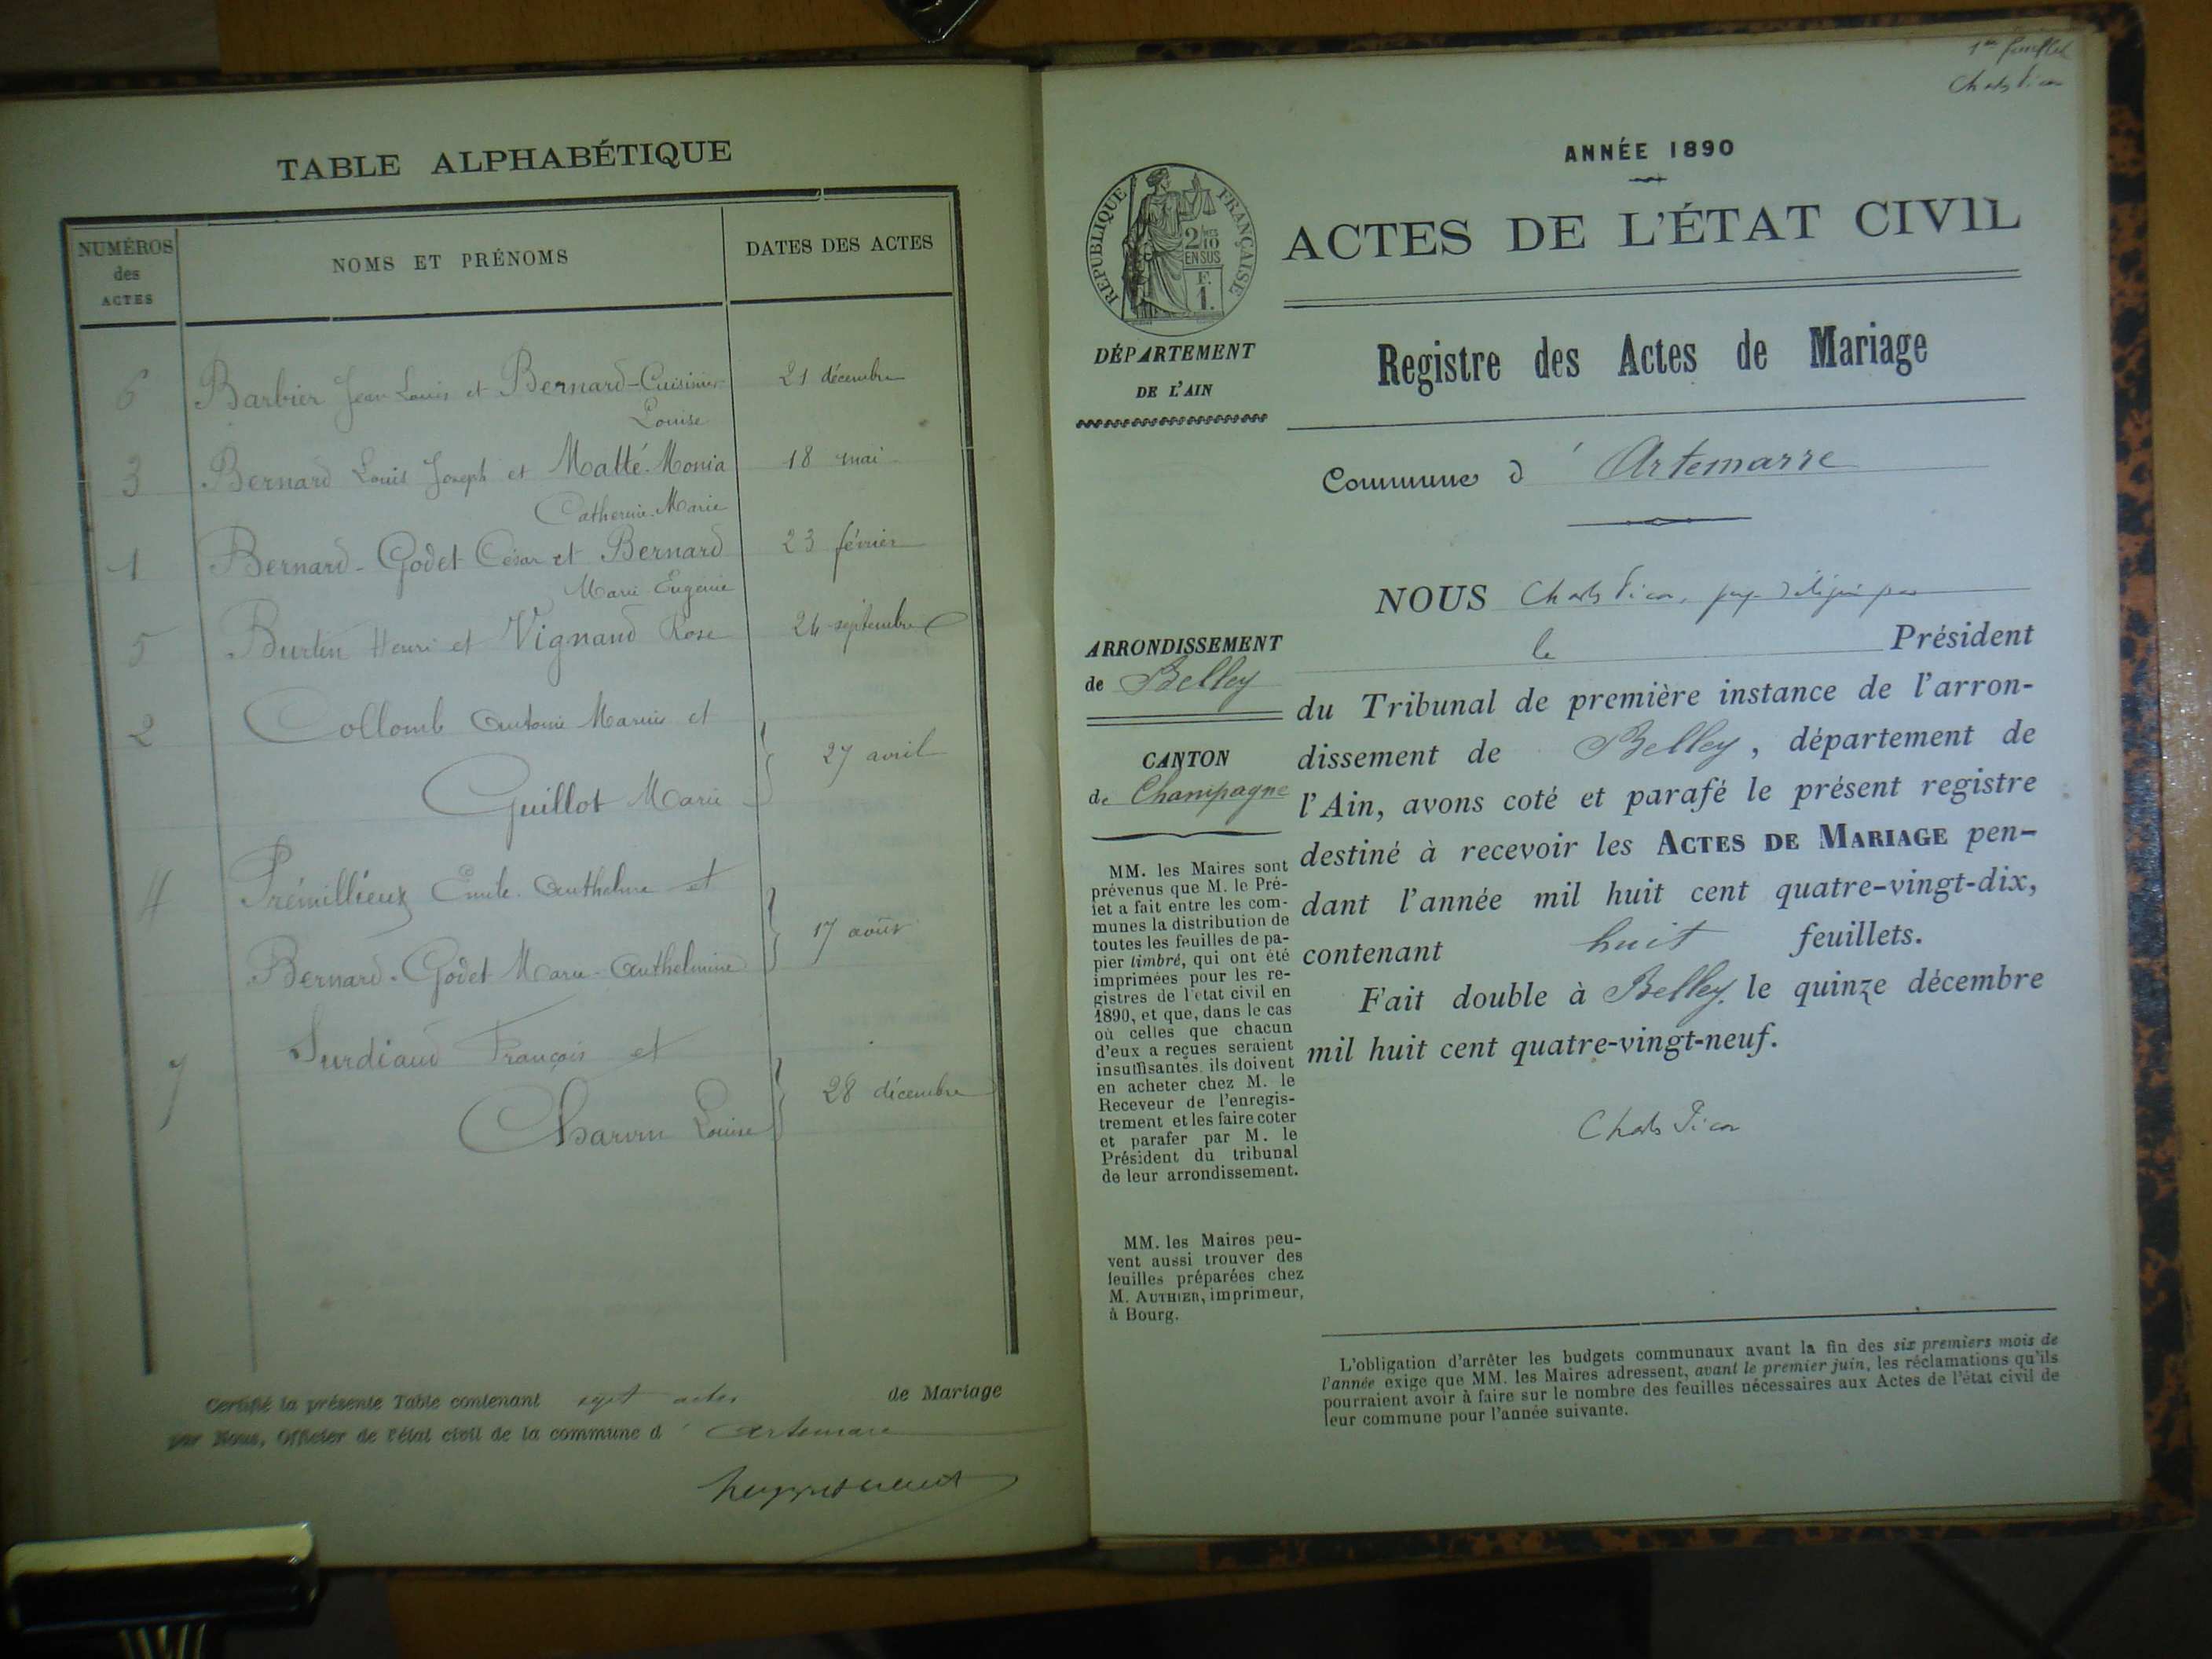 TABLE ALPHABÉTIQUE
NUMÉROS
des
ACTES
NOMS ET PRÉNOMS
DATES DES ACTES
6 Barbier Jean Louis et Bernard-Cuisinier 21 décembre
Louise
3 Bernard Louis Joseph et Matté-Monia 18 mai
Catherine-Marie
1 Bernard-Godet César et Bernard 23 février
Marie Eugénie
5 Burtin Henri et Vignand Rose 24 septembre
2 Collomb Antoine Marius et
27 avril
Guillot Marie
4 Prémillieux Emile-Anthelme et
17 août
Bernard-Godet Marie-Anthelmine
7 Surdiaud François et
28 décembre
Charvin Louise
Certifié la présente Table contenant sept actes de Mariage
par Nous, Officier de l'état civil de la commune d' Artemare
1er feuillet
ANNÉE 1890
RÉPUBLIQUE FRANÇAISE
2/10
EN SUS
F.
1.
ACTES DE L'ÉTAT CIVIL
Registre des Actes de Mariage
DÉPARTEMENT
DE L'AIN
Commune d' Artemarre
NOUS
ARRONDISSEMENT
de Belley
CANTON
de Champagne
le Président
du Tribunal de première instance de l'arron-
dissement de Belley, département de
l'Ain, avons coté et parafé le présent registre
destiné à recevoir les ACTES DE MARIAGE pen-
dant l'année mil huit cent quatre-vingt-dix,
contenant huit feuillets.
Fait double à Belley, le quinze décembre
mil huit cent quatre-vingt-neuf.
MM. les Maires sont
prévenus que M. le Pré-
fet a fait entre les com-
munes la distribution de
toutes les feuilles de pa-
pier timbré, qui ont été
imprimées pour les re-
gistres de l'état civil en
1890, et que, dans le cas
où celles que chacun
d'eux a reçues seraient
insuffisantes, ils doivent
en acheter chez M. le
Receveur de l'enregis-
trement et les faire coter
et parafer par M. le
Président du tribunal
de leur arrondissement.
MM. les Maires peu-
vent aussi trouver des
feuilles préparées chez
M. AUTHIER, imprimeur,
à Bourg.
L'obligation d'arrêter les budgets communaux avant la fin des six premiers mois de
l'année exige que MM. les Maires adressent, avant le premier juin, les réclamations qu'ils
pourraient avoir à faire sur le nombre des feuilles nécessaires aux Actes de l'état civil de
leur commune pour l'année suivante.